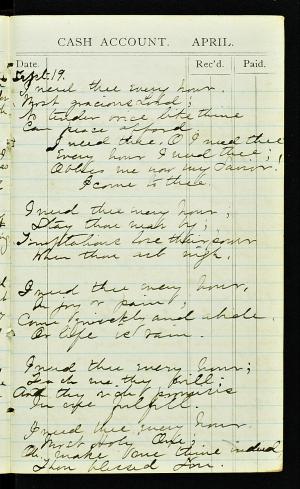 CASH ACCOUNT. APRIL.
Date. Rec'd. Paid.
Sept. 19.
I need thee every hour.
Most gracious Lord;
No tender voice like thine
Can peace afford
I need thee, O I need thee
Every hour I need thee;
O bless me now my Savior.
I come to thee.
I need thee every hour;
Stay thou near by;
Temptations lose their power
When thou art nigh.
I need thee every hour,
In joy or pain;
Come quickly and abide.
Or life is vain.
I need thee every hour;
Teach me thy will;
And thy rich promises
In me fulfill.
I need thee every hour
Most Holy One
Oh make me thine indeed
Thou blessed Son.